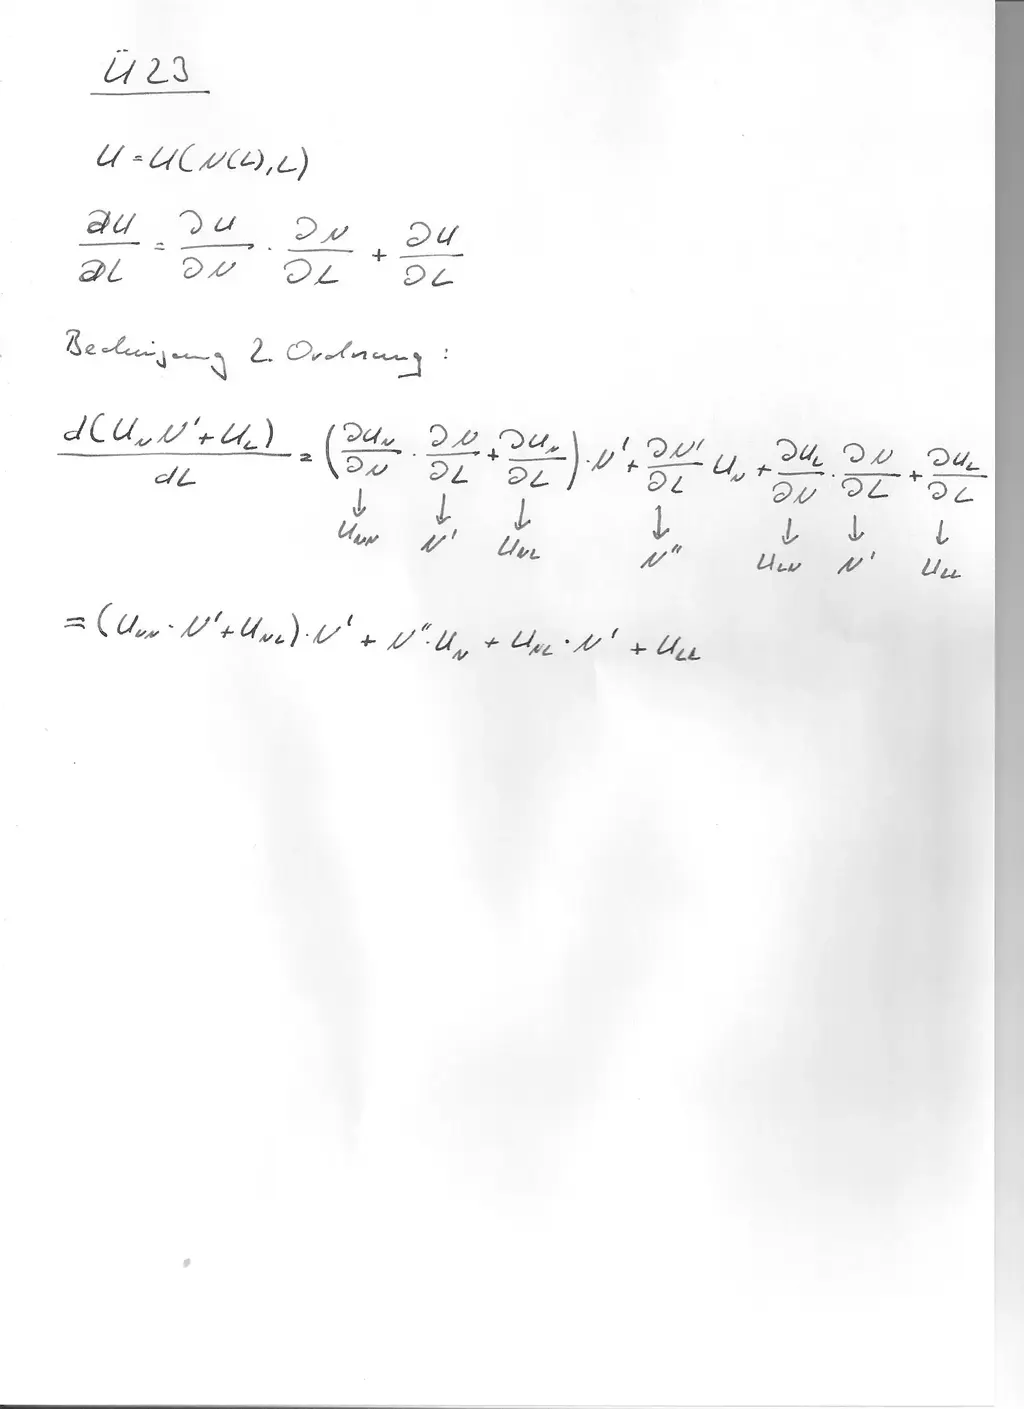 Ü 23
U = U(N(L), L)
∂U/∂L = ∂U/∂N · ∂N/∂L + ∂U/∂L
Bedingung 2. Ordnung :
d(U_N N' + U_L)/dL = (∂U_N/∂N · ∂N/∂L + ∂U_N/∂L) · N' + ∂N'/∂L U_N + ∂U_L/∂N · ∂N/∂L + ∂U_L/∂L
↓ ↓ ↓ ↓ ↓ ↓ ↓
U_NN N' U_NL N'' U_LN N' U_LL
= (U_NN · N' + U_NL) · N' + N'' · U_N + U_NL · N' + U_LL